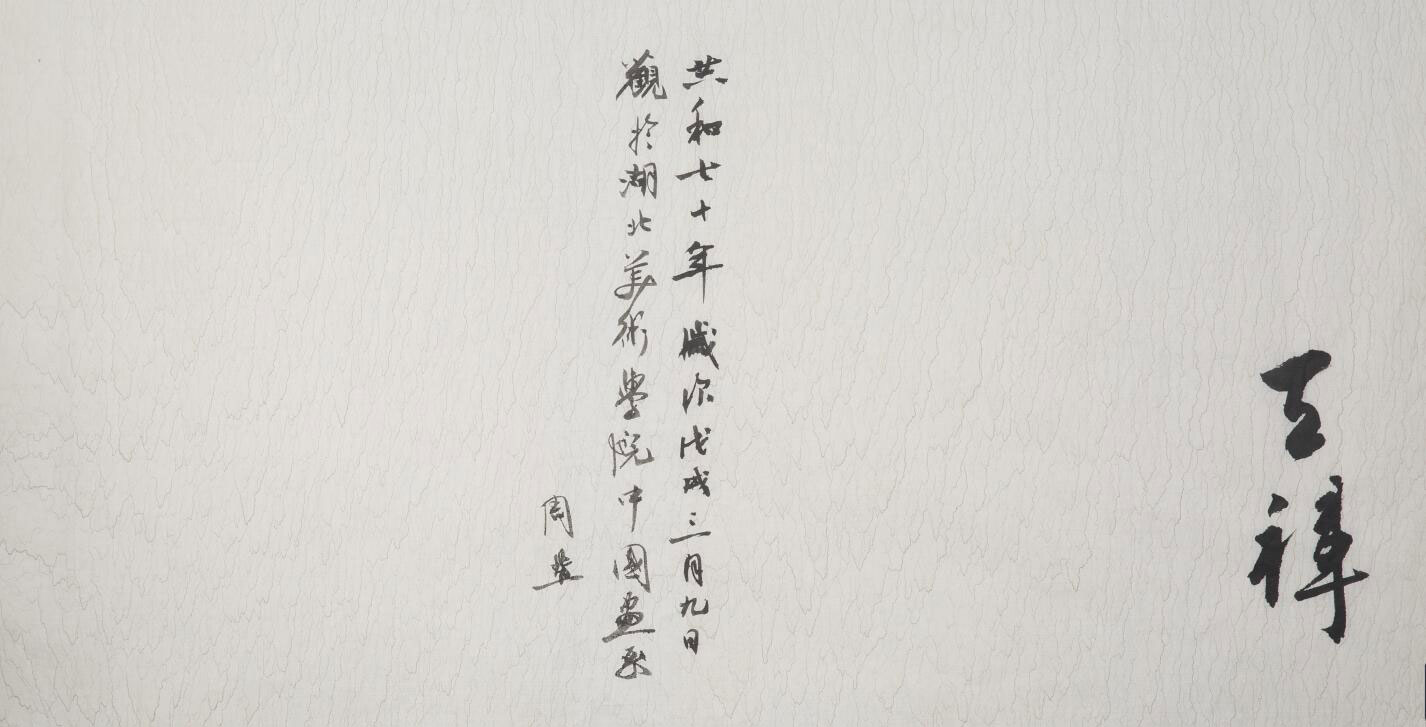 共和七十年歲次戊戌三月九日
觀於湖北美術學院中國畫系
周